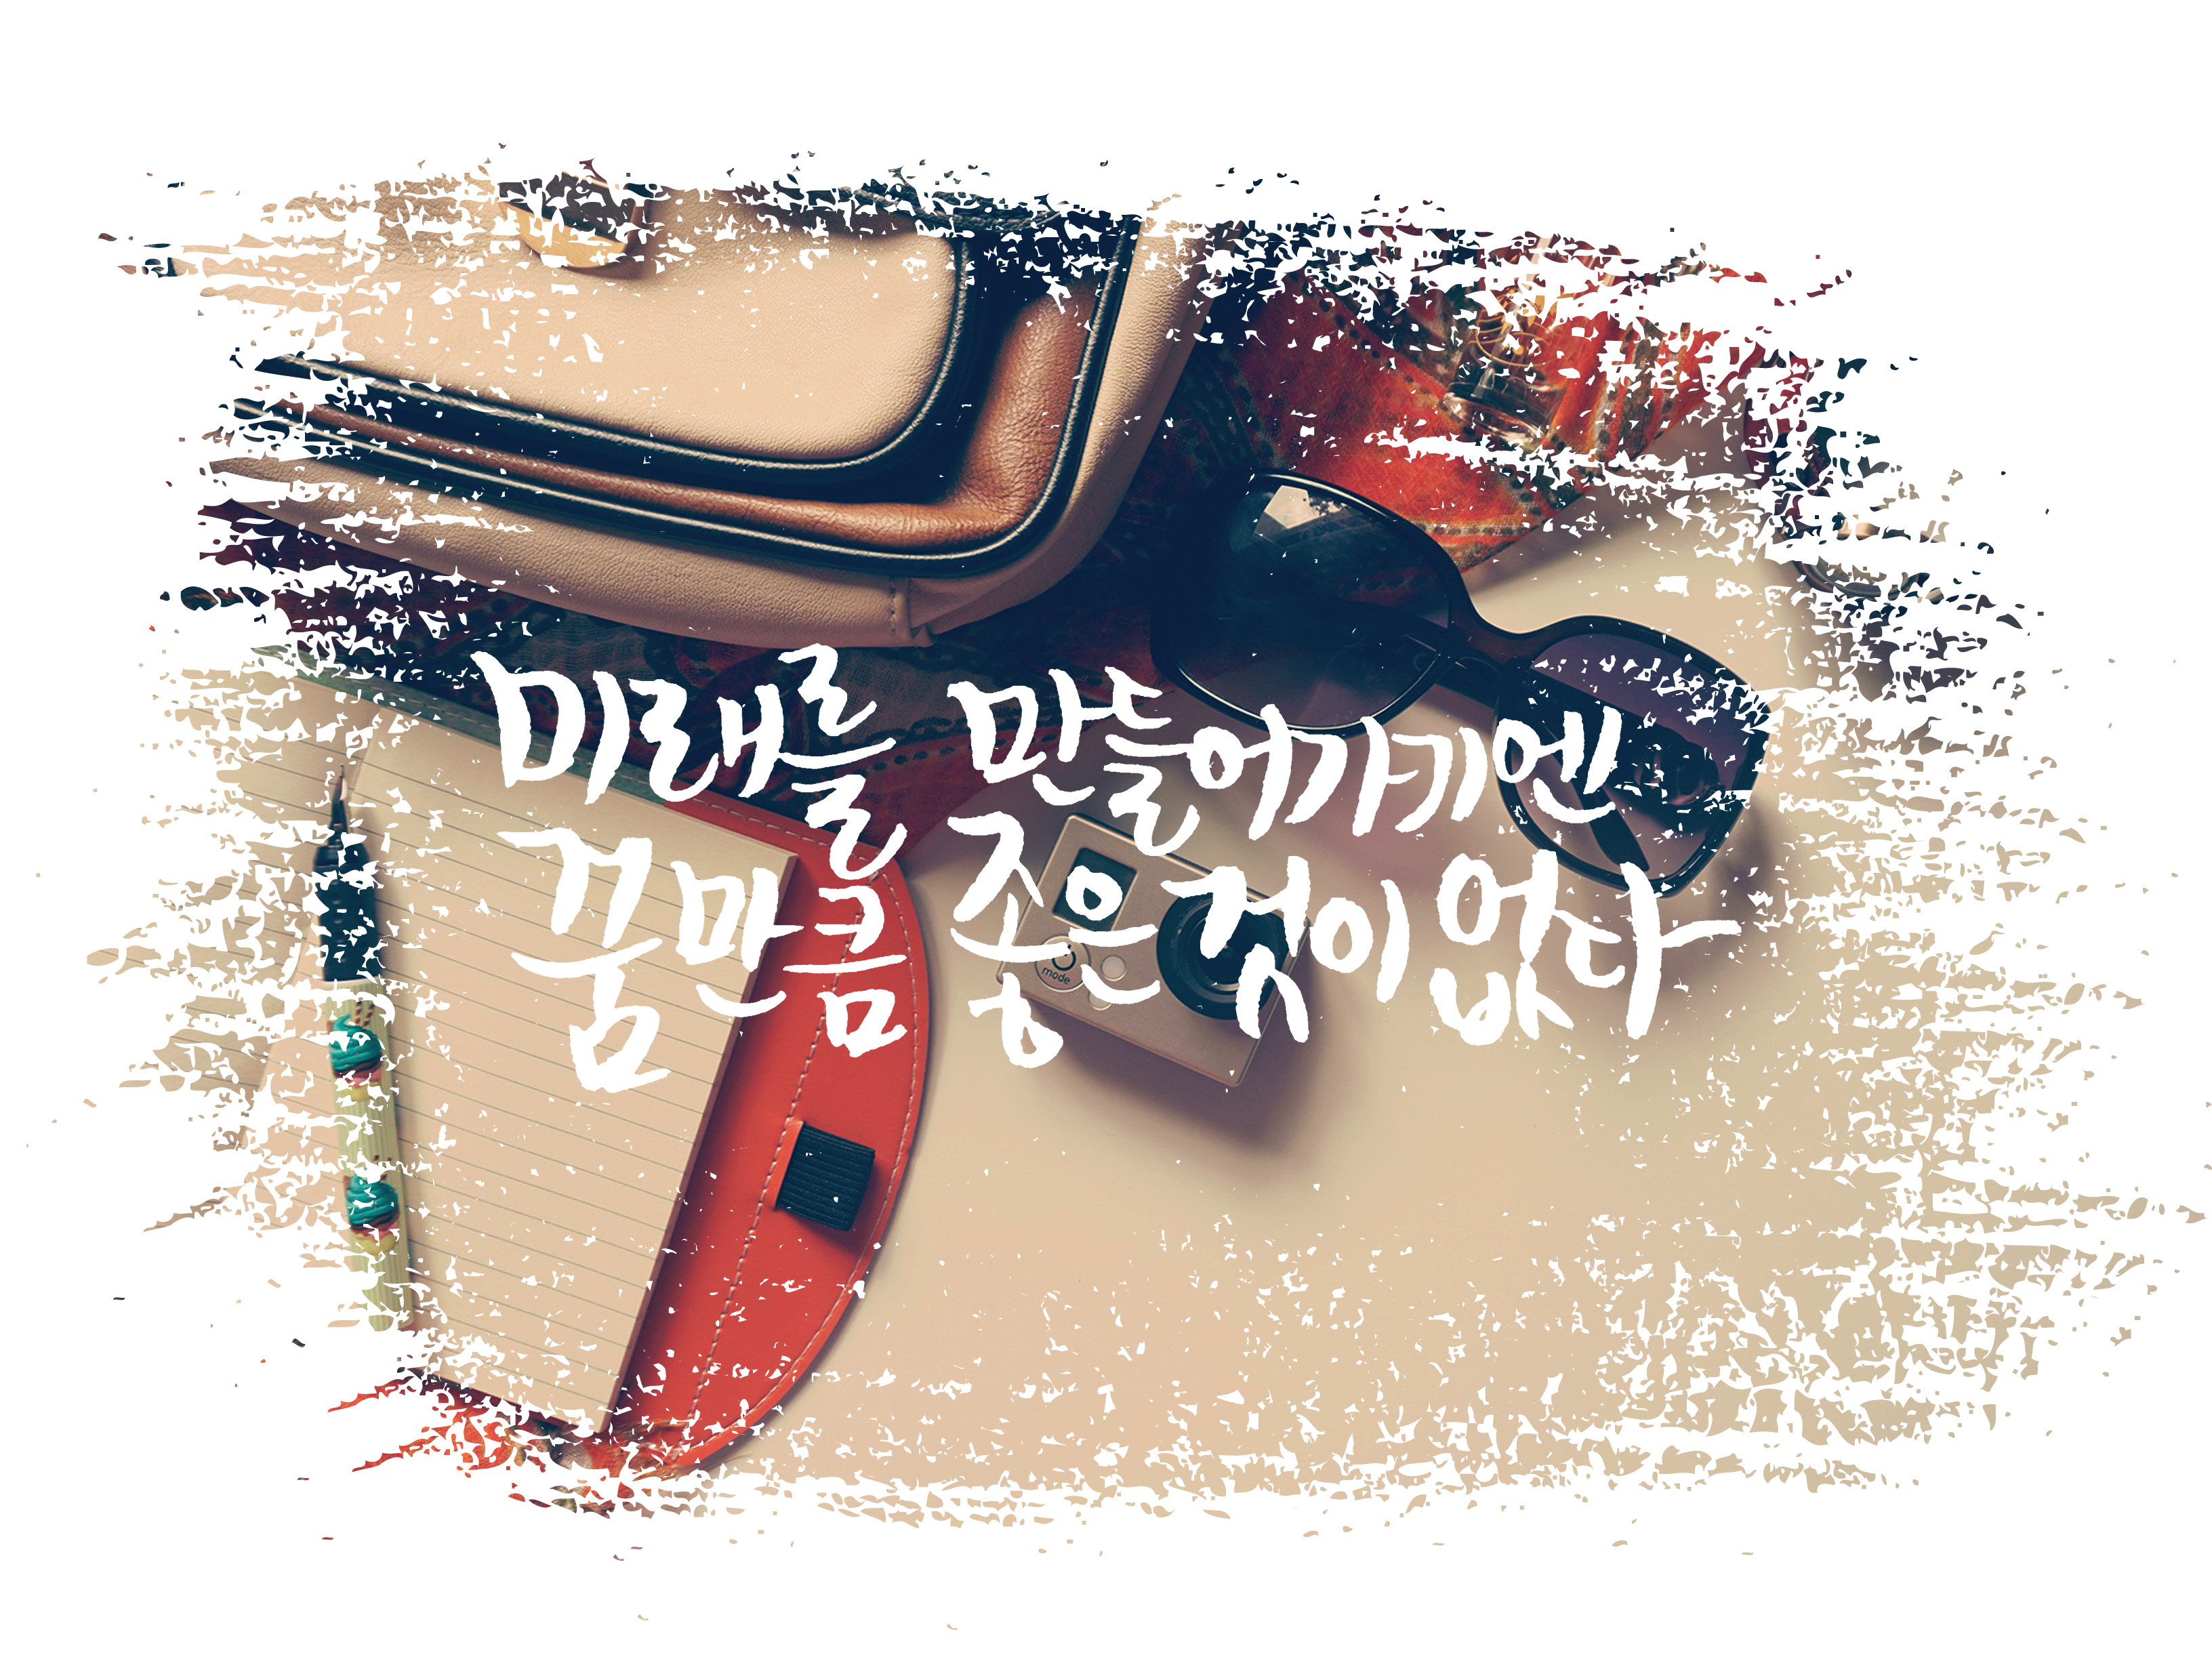 미래를 만들어가기엔
꿈만큼 좋은것이없다
mode